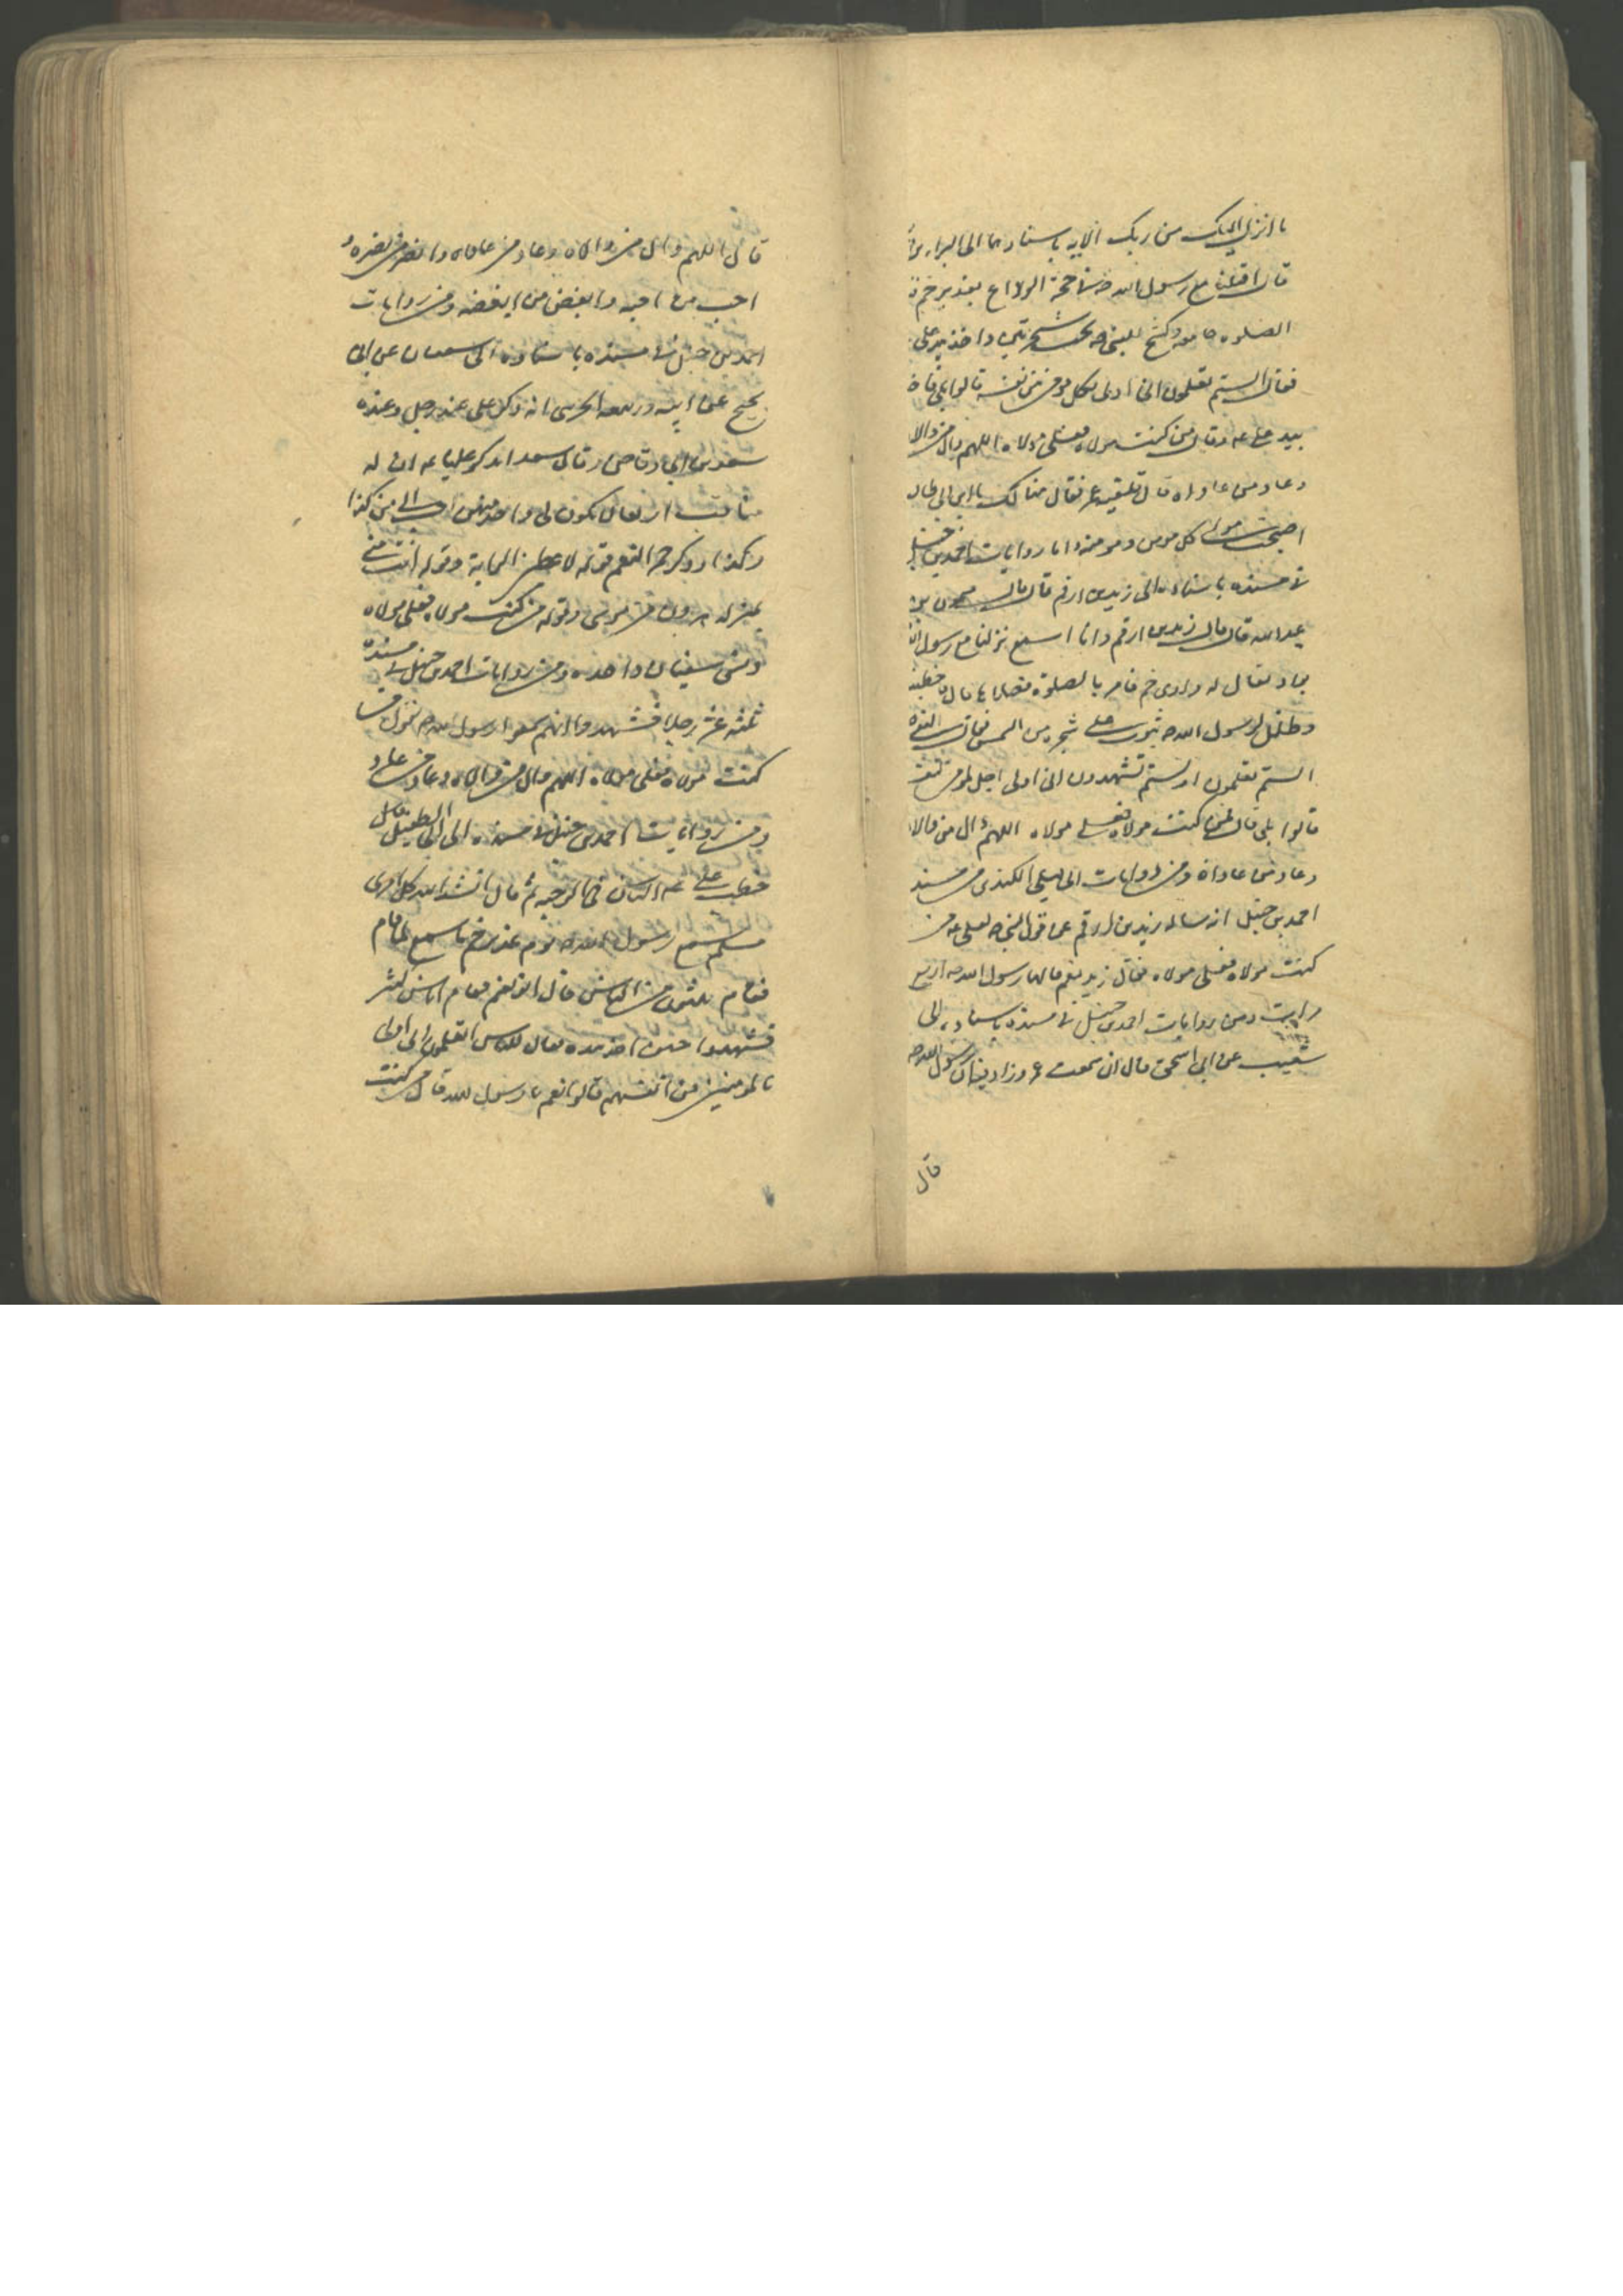 ما انزل اليك من ربك الايه باسنادهما الى البراء بن
قال اقبلنا مع رسول الله ص في حجة الوداع بغدير خم
الصلوه جامعه وكسح للنبي ص تحت شجرتين واخذ بيد علي
فقال الستم تعلمون اني اولى بكل مومن من نفسه قالوا بلى فاخذ
بيد علي عم وقال من كنت مولاه فعلي مولاه اللهم وال من والاه
وعاد من عاداه قال فلقيه عمر فقال هنا لك يا ابن ابي طالب
اصبحت مولى كل مومن ومومنة واما روايات احمد بن حنبل
في مسنده باسناده الى زيد بن ارقم قال قال ميمون بن
عبد الله قال قال زيد بن ارقم وانا اسمع نزلنا مع رسول الله
بواد يقال له وادي خم فامر بالصلوة فصلاها قال فخطبنا
وظلل لرسول الله ص بثوب على شجره من الشمس فقال النبي ص
الستم تعلمون او لستم تشهدون اني اولى بكل مومن من نفسه
قالوا بلى قال فمن كنت مولاه فعلي مولاه اللهم وال من والاه
وعاد من عاداه ومن روايات ابي ليلى الكندي من مسند
احمد بن حنبل انه سال زيد بن ارقم عن قول النبي ص لعلي عم من
كنت مولاه فعلي مولاه فقال زيد نعم قالها رسول الله ص اربع
مرات ومن روايات احمد بن حنبل في مسنده باسناده الى
شعيب عن ابي اسحق قال اني سمعت عمر وزاد فيه ان رسول الله ص
قال
قال اللهم وال من والاه وعاد من عاداه وانصر من نصره و
احب من احبه وابغض من ابغضه ومن روايات
احمد بن حنبل في مسنده باسناده الى سفيان عن ابي
نجيح عن ابيه وربيعه الجرشي انه ذكر علي عند رجل وعنده
سعد بن ابي وقاص فقال سعد اتذكر عليا عم ان له
مناقب اربعا لان يكون لي واحدة منهن احب الي من كذا
وكذا وذكر حمر النعم قوله لاعطين الراية وقوله انت مني
بمنزله هرون من موسى وقوله من كنت مولاه فعلي مولاه
ونسي سفيان واحده ومن روايات احمد بن حنبل في مسنده
ثلثه عشر رجلا فشهدوا انهم سمعوا رسول الله ص يقول من
كنت مولاه فعلي مولاه اللهم وال من والاه وعاد من عاداه
ومن روايات احمد بن حنبل في مسنده الى ابي الطفيل قال
خطب علي عم الناس في الرحبه ثم قال انشد الله كل امرئ
مسلم سمع رسول الله ص يوم غدير خم ما سمع لما قام
فقام ثلثون من الناس قال ابو نعيم فقام اناس كثير
فشهدوا حين اخذ بيده فقال للناس اتعلمون اني اولى
بالمومنين من انفسهم قالوا نعم يا رسول الله قال من كنت